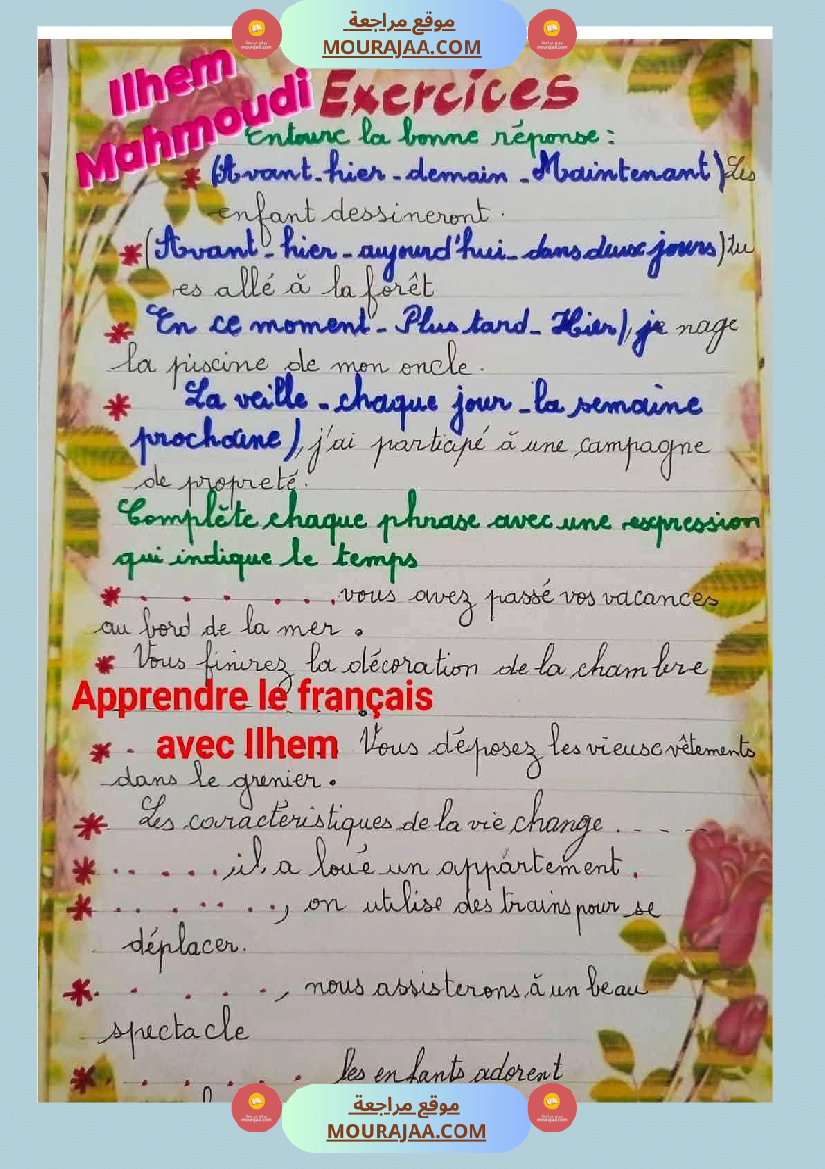 موقع مراجعة
MOURAJAA.COM
Ilhem
Mahmoudi
Exercices
Entoure la bonne réponse :
* (Avant-hier - demain - Maintenant) Les
enfant dessineront .
* (Avant-hier - aujourd'hui - dans deux jours) tu
es allé à la forêt
* En ce moment - Plus tard - Hier), je nage
la piscine de mon oncle .
* La veille - chaque jour - la semaine
prochaine), j'ai participé à une campagne
de propreté .
Complète chaque phrase avec une expression
qui indique le temps
* . . . . . . . vous avez passé vos vacances
au bord de la mer .
* Vous finirez la décoration de la chambre
Apprendre le français
avec Ilhem
* . Vous déposez les vieux vêtements
dans le grenier .
* Les caractéristiques de la vie change . - - -
* . . . . . . , il a loué un appartement .
* . . . . . . . , on utilise des trains pour se
déplacer.
* . . . . . , nous assisterons à un beau
spectacle
* . . . . . . les enfants adorent
موقع مراجعة
MOURAJAA.COM